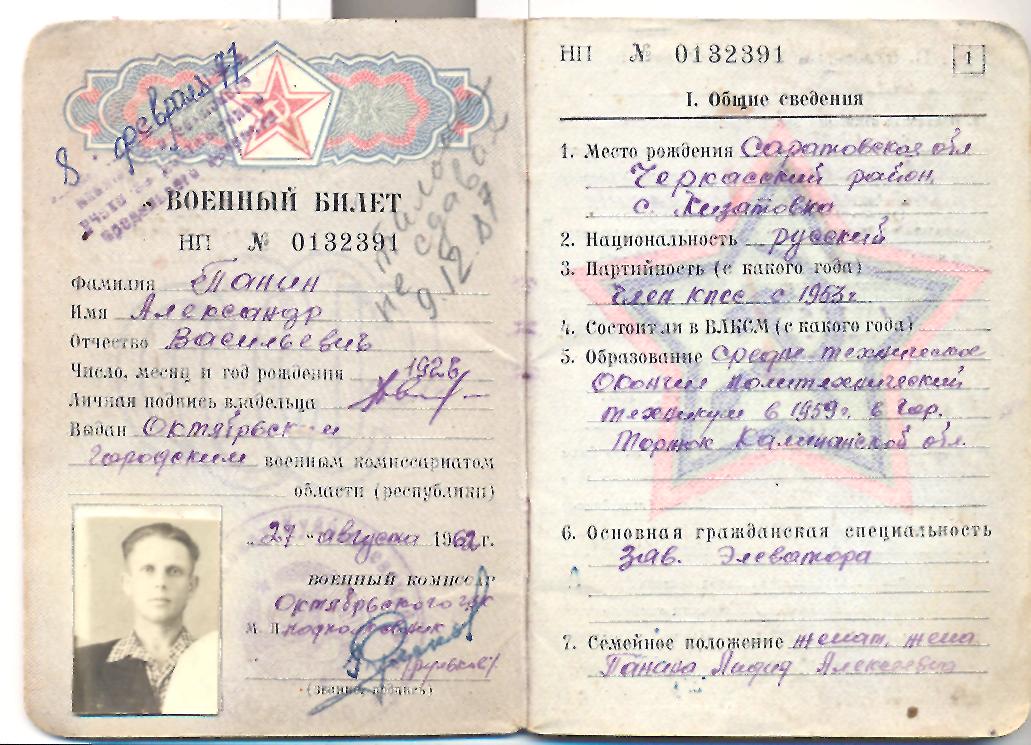 8 февраля 77
ВОЕННЫЙ БИЛЕТ
НП № 0132391
не сдал
9.12.87
Фамилия Панин
Имя Александр
Отчество Васильевич
Число, месяц и год рождения 1928
Личная подпись владельца
Выдан Октябрьским
Городским военным комиссариатом
области (республики)
27 "августа 1962 г.
ВОЕННЫЙ КОМИССАР
Октябрьского гвк
М. П. подполковник
(звание, подпись)
НП № 0132391
1
I. Общие сведения
1. Место рождения Саратовская обл
Черкасский район,
с.
2. Национальность русский
3. Партийность (с какого года)
Член КПСС с 1953г
4. Состоит ли в ВЛКСМ (с какого года)
5. Образование средне техническое
Окончил политехнический
техникум в 1959г. в гор.
Торжок Калининской обл.
6. Основная гражданская специальность
Зав. Элеватора
7. Семейное положение женат, жена
Панина Лидия Алексеевна